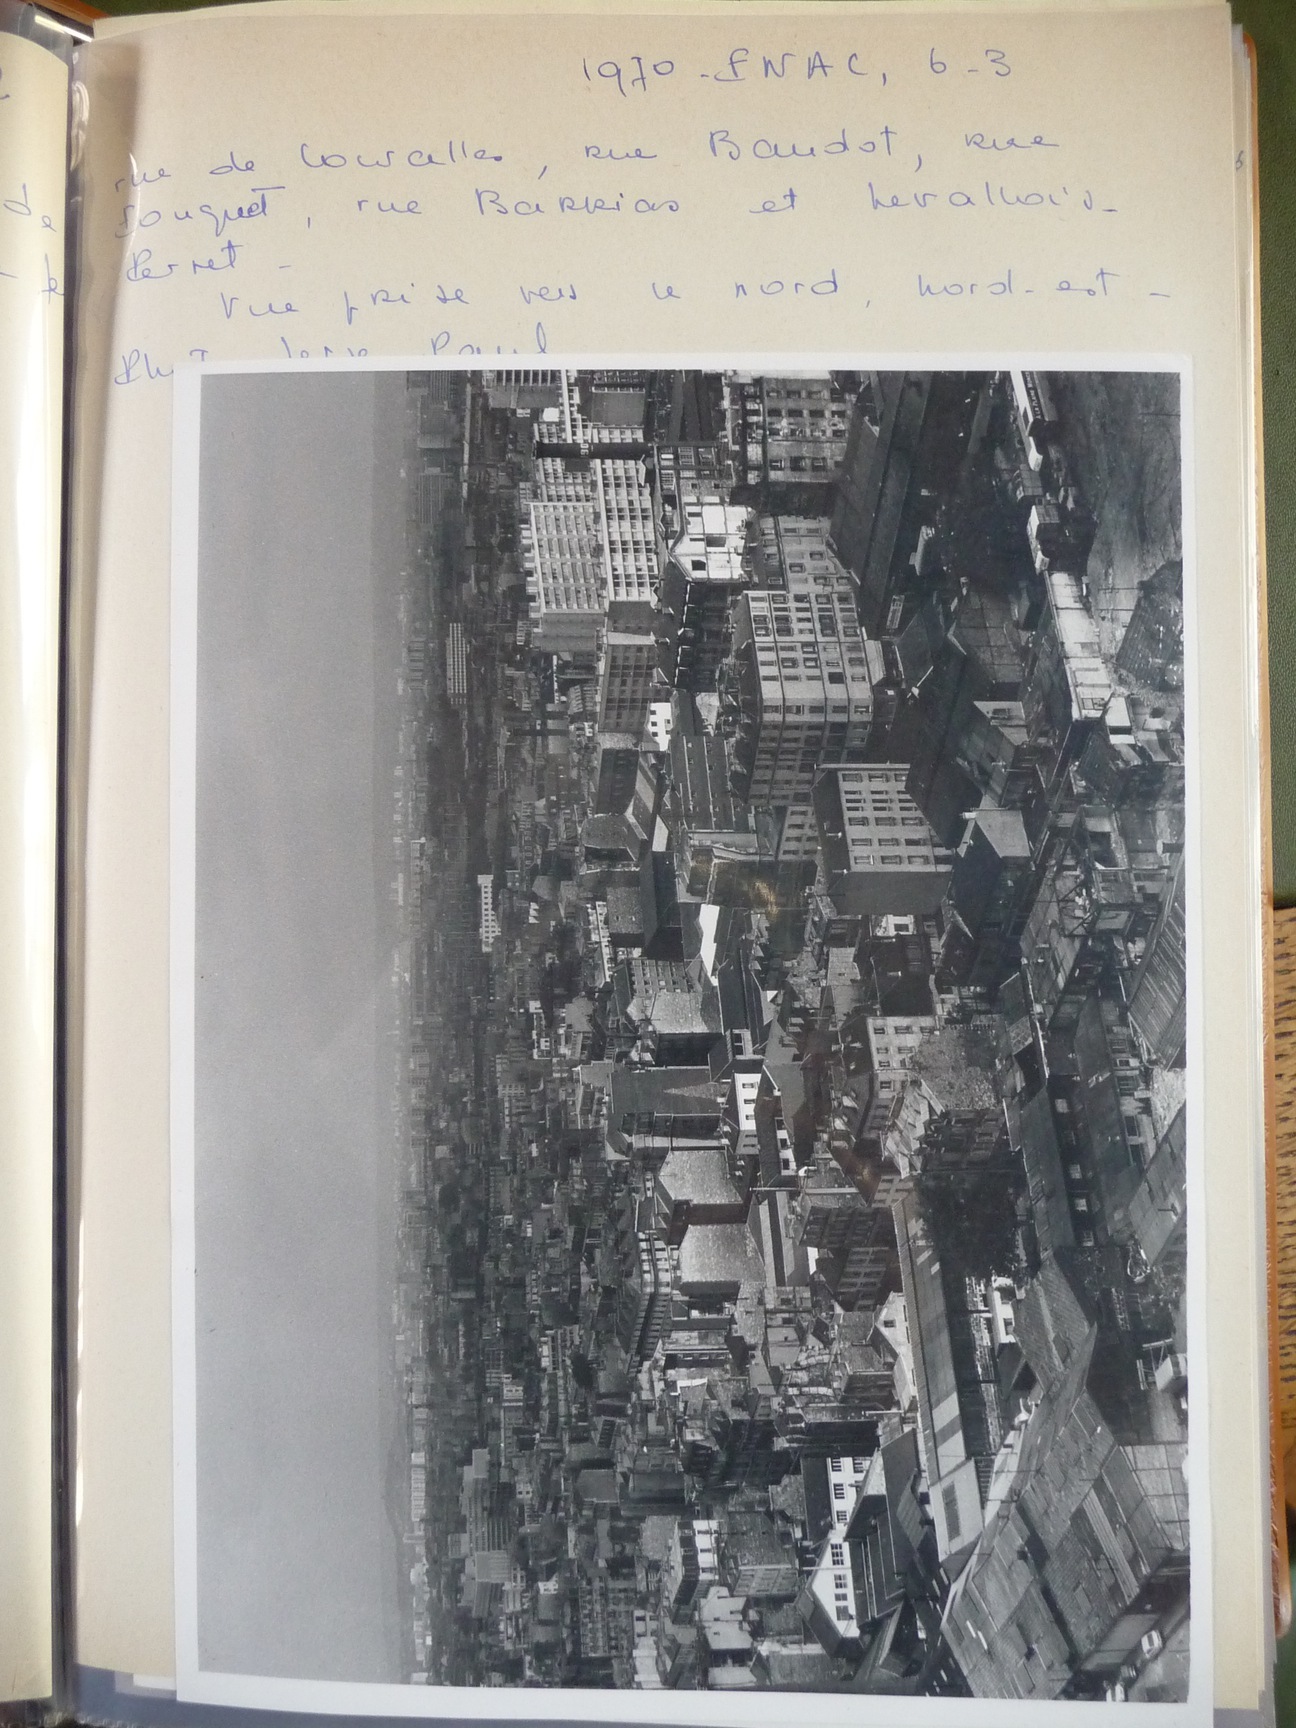 1970 - FNAC, 6-3
rue de Courcelles, rue Baudot, rue
Fouquet, rue Barrias et Levallois-
Perret -
Vue prise vers le nord, nord-est -
Paul
de